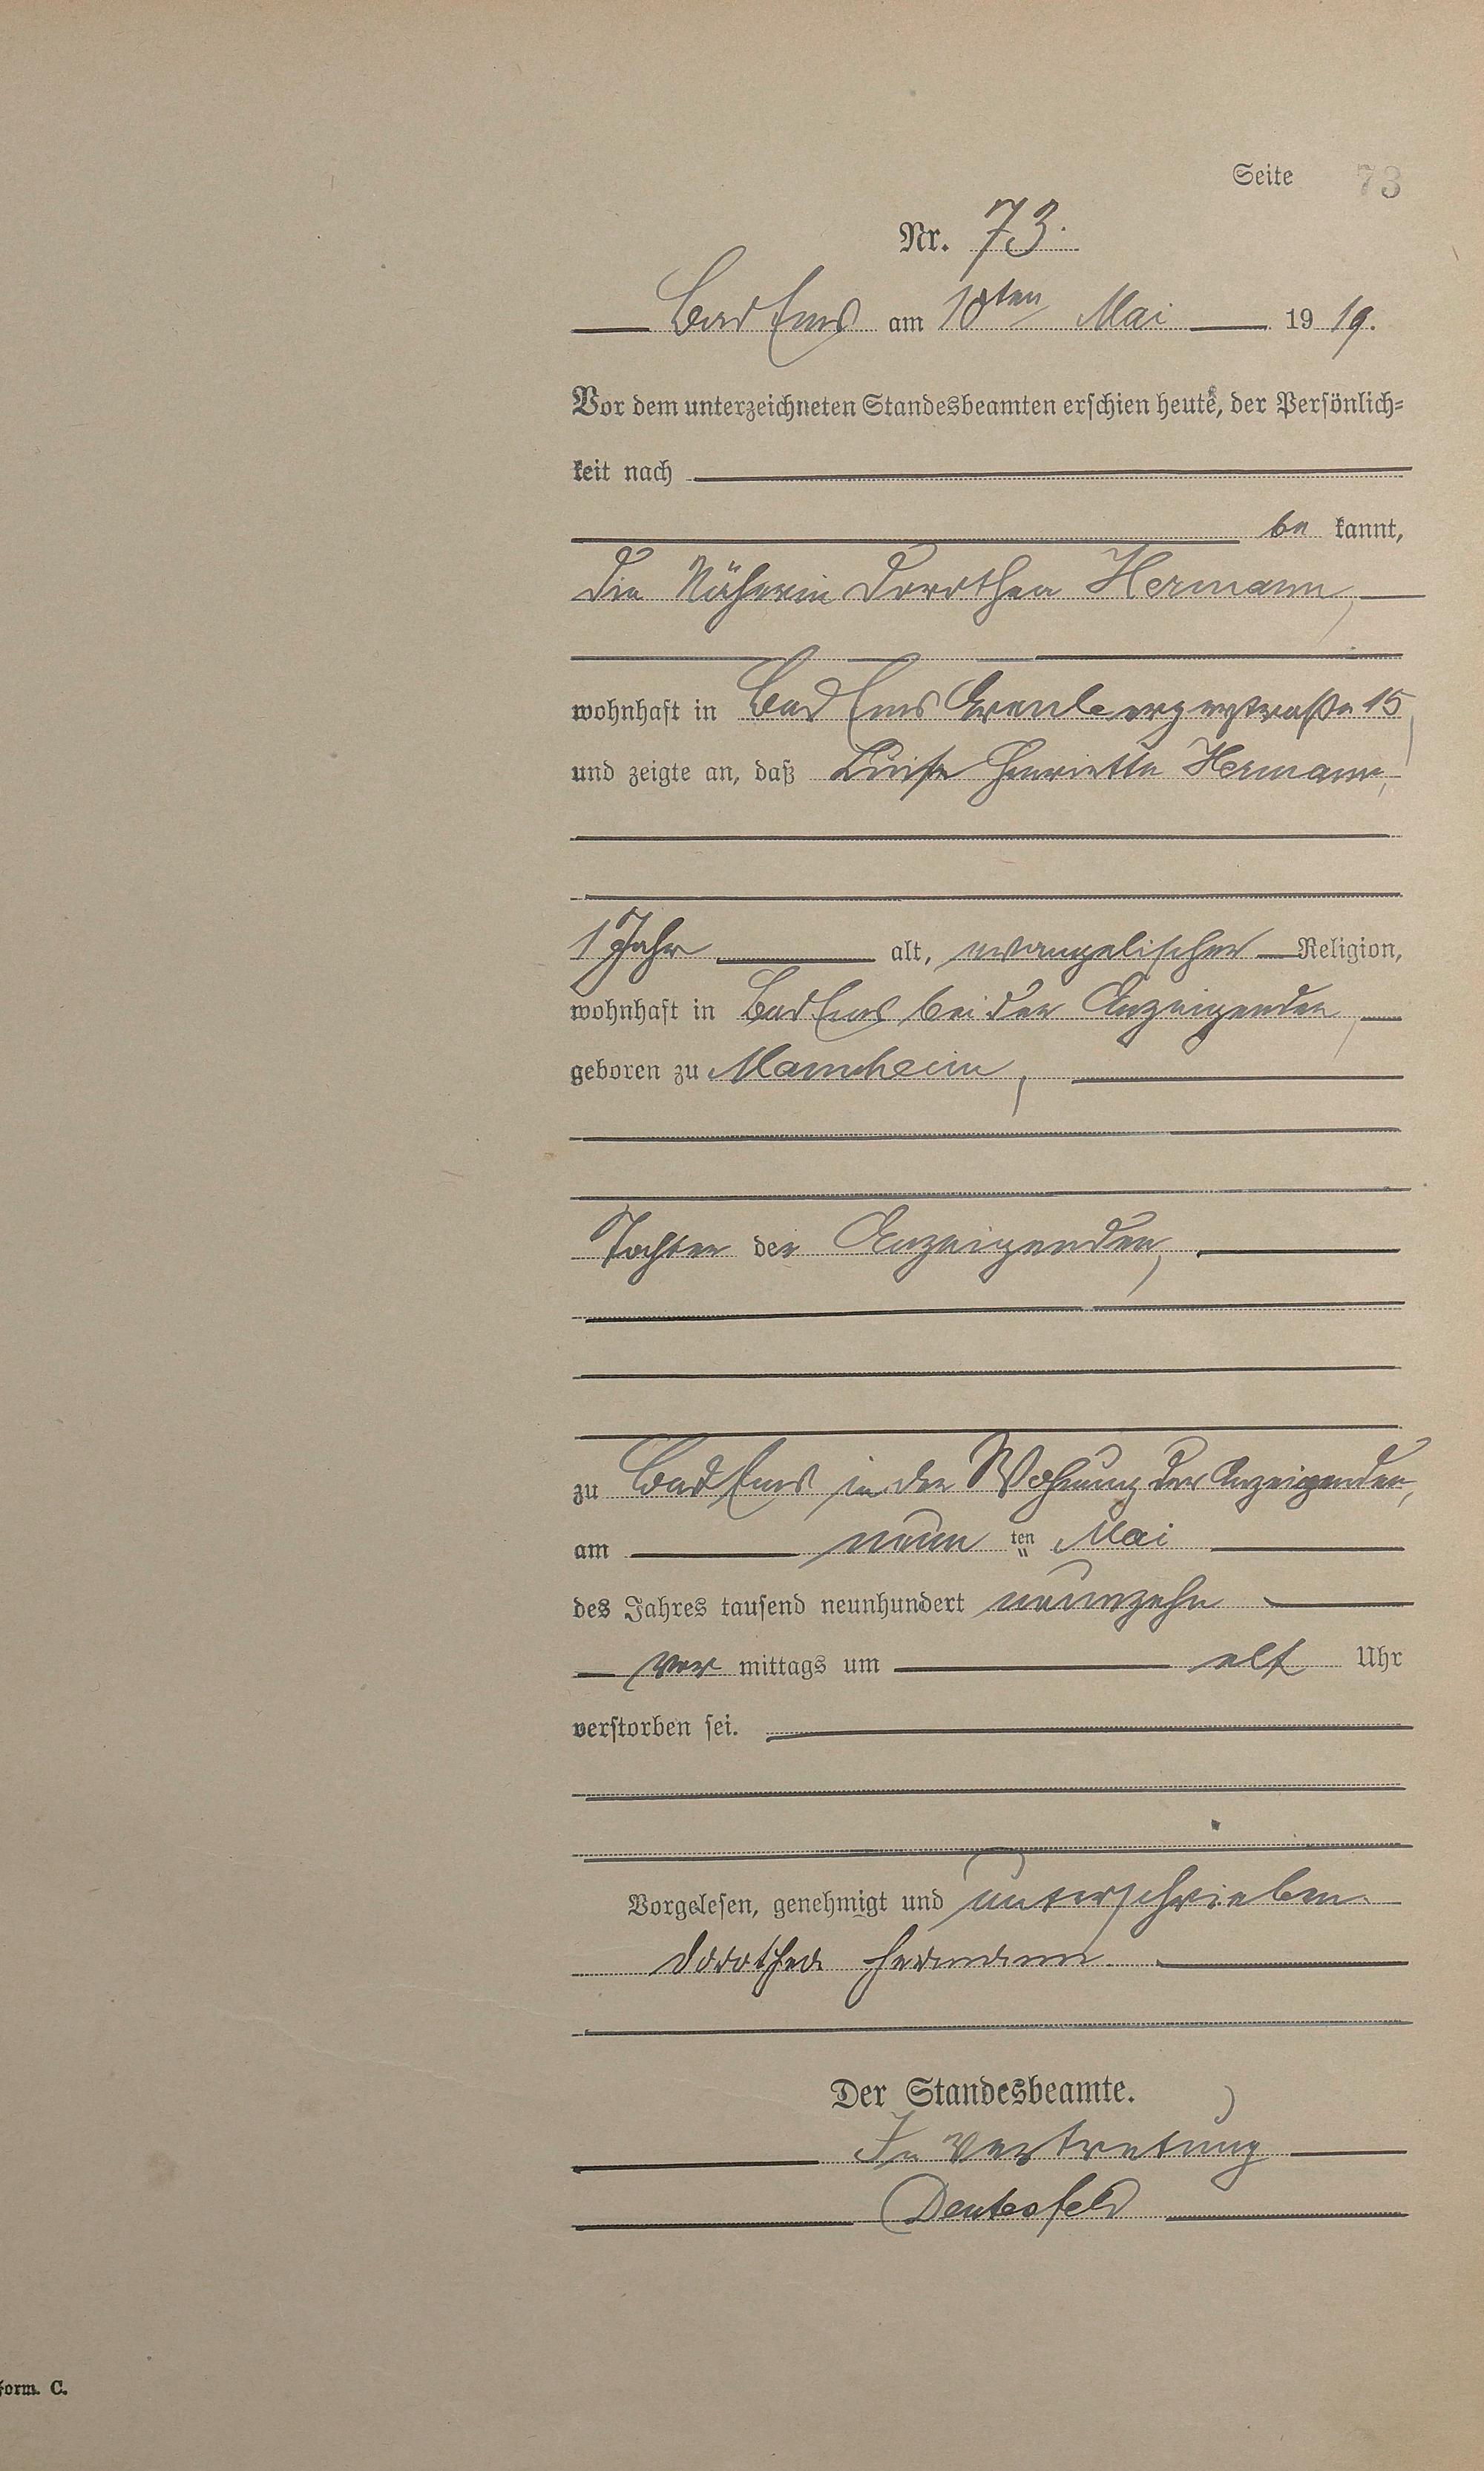 Seite 73
Nr. 73.
Bad Ems am 10ten Mai 19 19.
Vor dem unterzeichneten Standesbeamten erschien heute, der Persönlich-
keit nach
be kannt,
die Näherin Dorothea Hermann,
wohnhaft in Bad Ems Arenbergerstraße 15,
und zeigte an, daß Luise Henriette Hermann,
1 Jahr alt, evangelischer Religion,
wohnhaft in Bad Ems bei der Anzeigenden,
geboren zu Mannheim,
Tochter der Anzeigenden,
zu Bad Ems in der Wohnung der Anzeigenden,
am neun ten Mai
des Jahres tausend neunhundert neunzehn
vor mittags um elf Uhr
verstorben sei.
Vorgelesen, genehmigt und unterschrieben.
Dorothea Hermann.
Der Standesbeamte.
In Vertretung
Form. C.